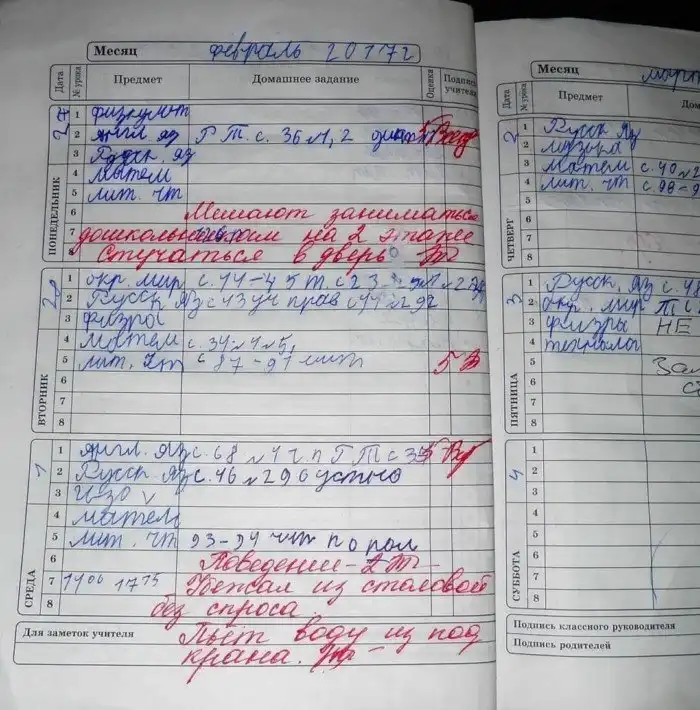 Месяц февраль 2017г
Дата № урока Предмет Домашнее задание Оценки Подпись учителя
ПОНЕДЕЛЬНИК
27
1 физкульт
2 англ. яз Р.Т. с. 36 N1, 2 5
3 Русск. яз
4 матем
5 лит. чт
6 Мешают заниматься
7 дошкольникам на 2 этаже
8 Стучаться в дверь
ВТОРНИК
28
1 окр. мир с. 44-45 т. с 23-
2 Русск. яз с 43 уч прав с 44 N 92
3 физра
4 матем с. 34 N 4 N 5,
5 лит. чт с 87-91 5
6
7
8
СРЕДА
1
1 Англ. яз с. 68 N 4 Р Т с 5
2 Русск. яз с. 46 N 296 устно
3 ИЗО
4 матем
5 лит. чт 93-94 чит по рол
6 Поведение - 2
7 Убежал из столовой
8 без спроса.
Для заметок учителя Пьёт воду из под
крана.
Месяц март
Дата № урока Предмет
ЧЕТВЕРГ
2
1 Русск. яз
2 музыка
3 матем с. 40 N 2
4 лит. чт с. 98-9
5
6
7
8
ПЯТНИЦА
3
1 Русск. яз с. 48
2 окр. мир Т с
3 физры НЕ
4 технолог
5
6
7
8
СУББОТА
4
1
2
3
4
5
6
7
8
Подпись классного руководителя
Подпись родителей